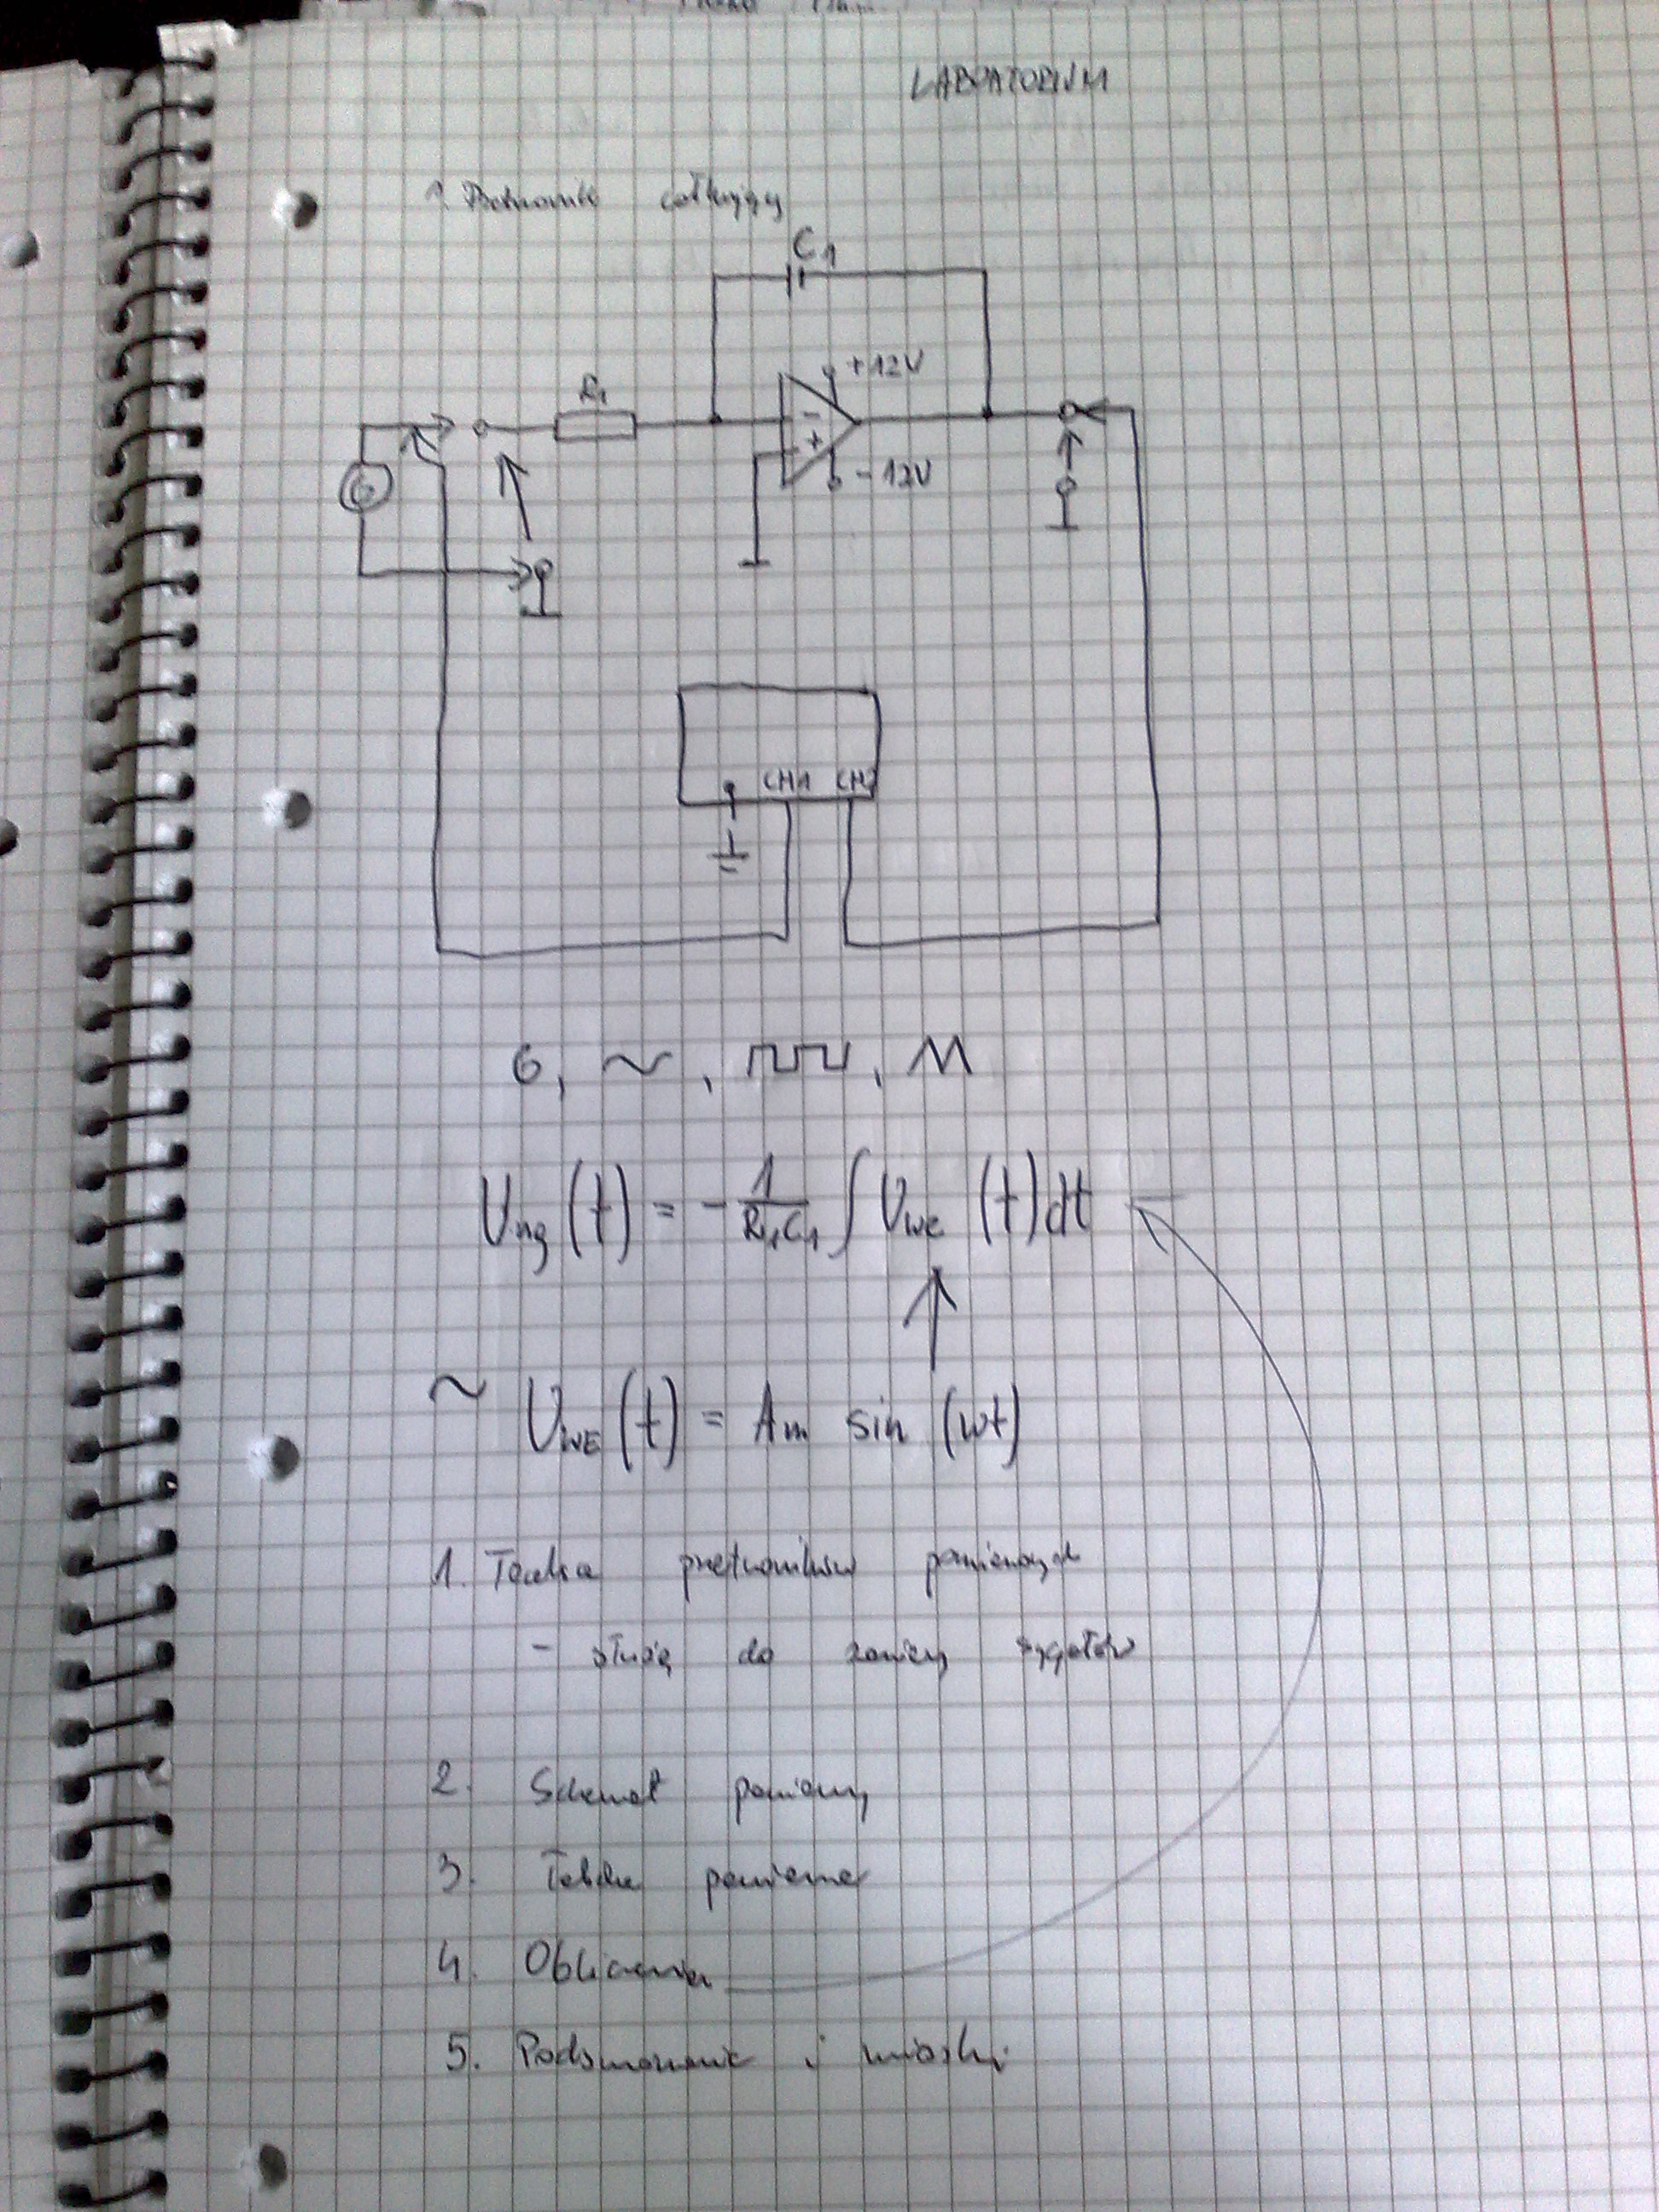 LABORATORIUM
1. Przetwornik całkujący
C1
+12V
R1
-
+
-12V
G
CH1 CH2
G, ~, ,
Uwy (t) = - 1/R1C1 ∫ Uwe (t) dt
~ UWE (t) = Am sin (ωt)
1. przetworników pomiarowych
- służą do zamiany sygnałów
2. Schemat pomiarowy
3. Tabela pomiarowa
4. Obliczenia
5. Podsumowanie i wnioski